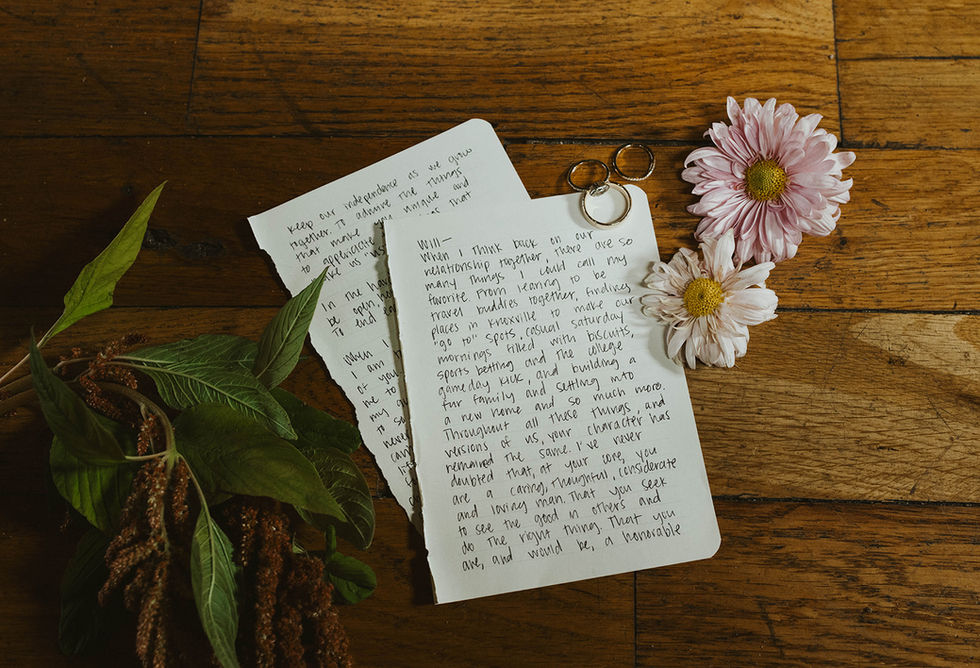 keep our independence as we grow
together. To admire the things
that make you unique and
to appreciate that
make us "us
In the ha
be open,
To end ea
When I
I am
of yo
me to
my
to su
never
Will—
When I think back on our
relationship together, there are so
many things I could call my
favorite. From learing to be
travel buddies together, findings
places in Knoxville to make our
"go to" spots, casual saturday
mornings filled with biscuits,
sports betting and the college
gameday kick, and building a
fur family and settling into
a new home and so much more.
Throughout all these things, and
versions of us, your character has
remained the same. I've never
doubted that, at your core, you
are a caring, thoughtful, considerate
and loving man. That you seek
to see the good in others and
do the right thing. That you
are, and would be, a honorable